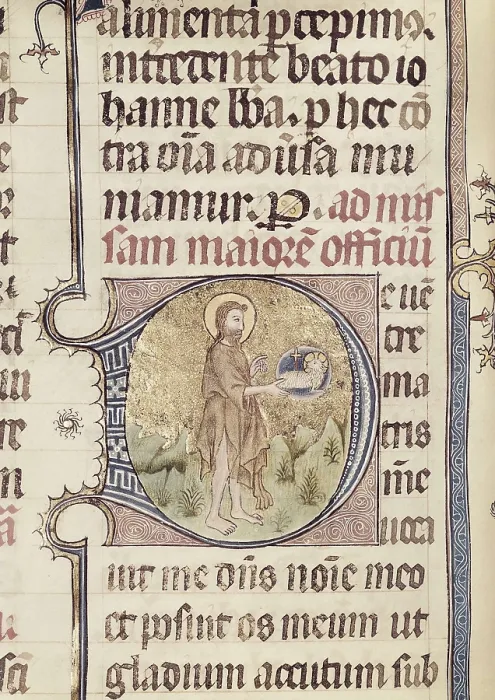 alimenta ꝑcepimꝰ.
beato io
hanne ꝑ hec cō
tra oīa aduīsa mu
niamur. P. ad mis
sam maiorē officiū
De uē
tre
ma
tris
mē
uoca
uit me dn̄s noīe meo
et posuit os meum ut
gladium accutum sub